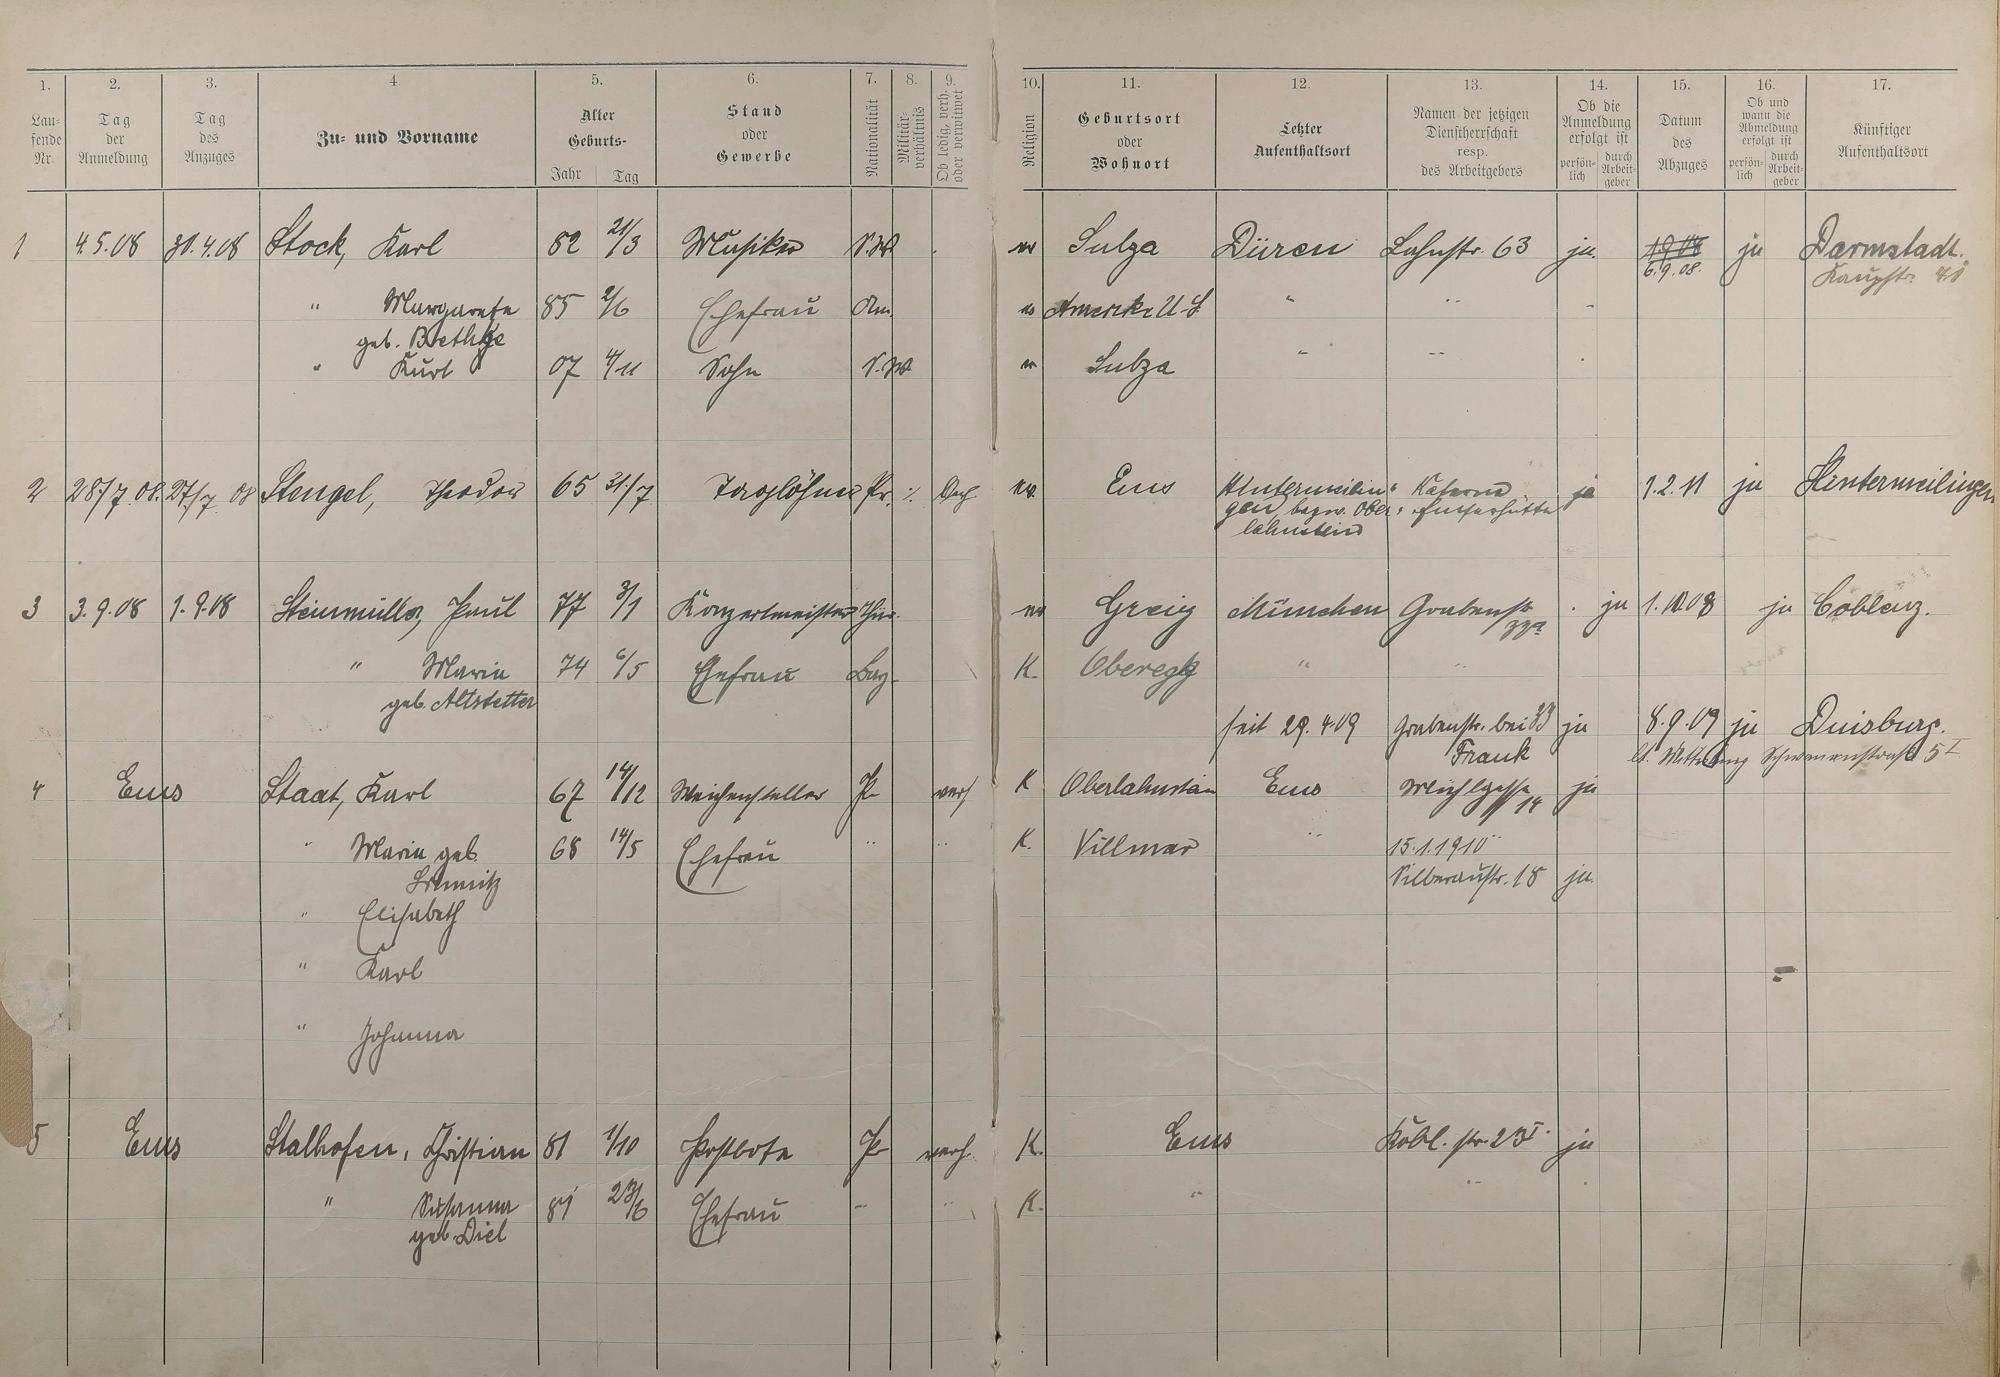 1. 2. 3. 4 5. 6. 7. 8. 9. 10. 11. 12. 13. 14. 15. 16. 17.
Lau-
fende
Nr.
Tag
der
Anmeldung
Tag
des
Anzuges
Zu- und Vorname
Alter
Geburts-
Jahr Tag
Stand
oder
Gewerbe
Nationalität
Militär-
verhältnis
Ob ledig, verh.
oder verwitwet
Religion
Geburtsort
oder
Wohnort
Letzter
Aufenthaltsort
Namen der jetzigen
Dienstherrschaft
resp.
des Arbeitgebers
Ob die
Anmeldung
erfolgt ist
persön-
lich
durch
Arbeit-
geber
Datum
des
Abzuges
Ob und
wann die
Abmeldung
erfolgt ist
persön-
lich
durch
Arbeit-
geber
Künftiger
Aufenthaltsort
1 4.5.08 30.4.08 Stock, Karl 82 21/3 Musiker S.W. ev Sulza Düren Lahnstr. 63 ja. 6.9.08. ja Darmstadt.
Kaupstr. 40
" Margarete 85 2/6 Ehefrau Am. ev Amerika U.S. " "
geb. Bethke
" Kurt 07 4/11 Sohn S.W ev Sulza " "
2 28/7.08. 27/7.08 Stengel, Theodor 65 31/7 Taglöhner Pr. ev. Ems Hintermeilin- Kaserne ja 1.2.11 ja Hintermeilingen
gen, bezw. Ober- Emserhütte
lahnstein
3 3.9.08 1.9.08 Steinmüller, Paul 77 3/1 Konzertmeister Thür. ev Greiz München Grabenstr ja 1.10.08 ja Coblenz.
33a
" Maria 74 6/5 Ehefrau Bay. K. Oberegg " "
geb. Altstetter
seit 29.4.09 Grabenstr. bei 33 ja 8.9.09 ja Duisburg.
Frank lt. Mitteilung Schwanenstraße 5 I
4 Ems Staat, Karl 67 14/12 Weichensteller Pr verh K Oberlahnstein Ems 14 ja
" Maria geb. 68 14/5 Ehefrau " " K. Villmar " 15.1.1910
Silberaustr. 18 ja.
" Elisabeth
" Karl
" Johanna
5 Ems Stalhofen, Christian 81 1/10 Postbote Pr verh. K. Ems Kobl. str. 23 I. ja
" Susanna 81 23/6 Ehefrau " " K. " "
geb. Diel